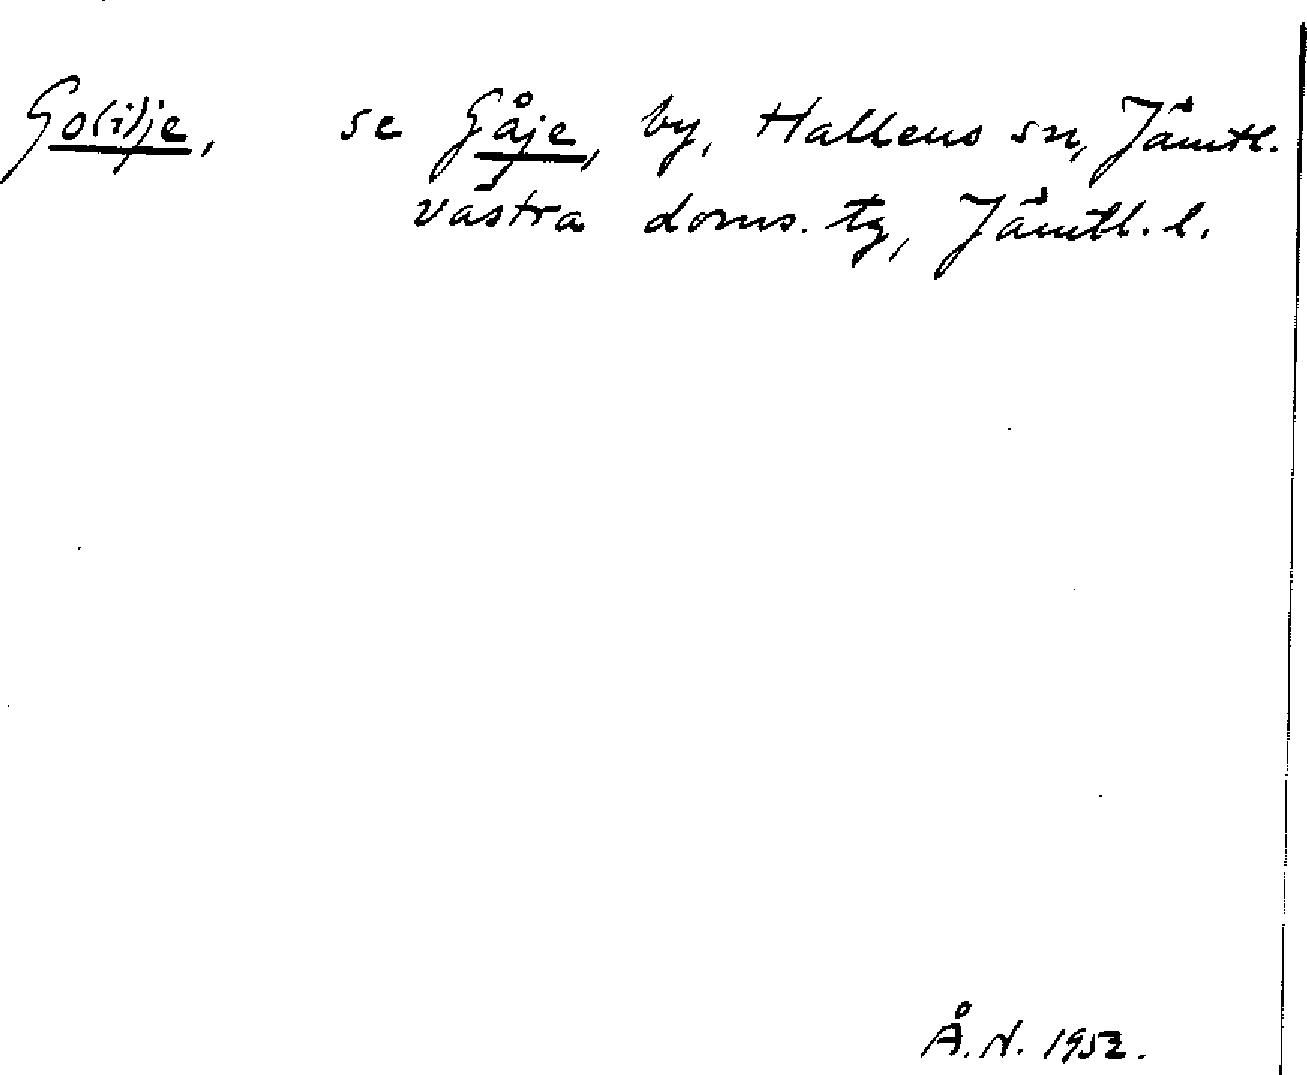 Go(i)je, se Gåje, by, Hallens sn, Jämtl.
västra doms. tg, Jämtl. l.
Å. N. 1952.